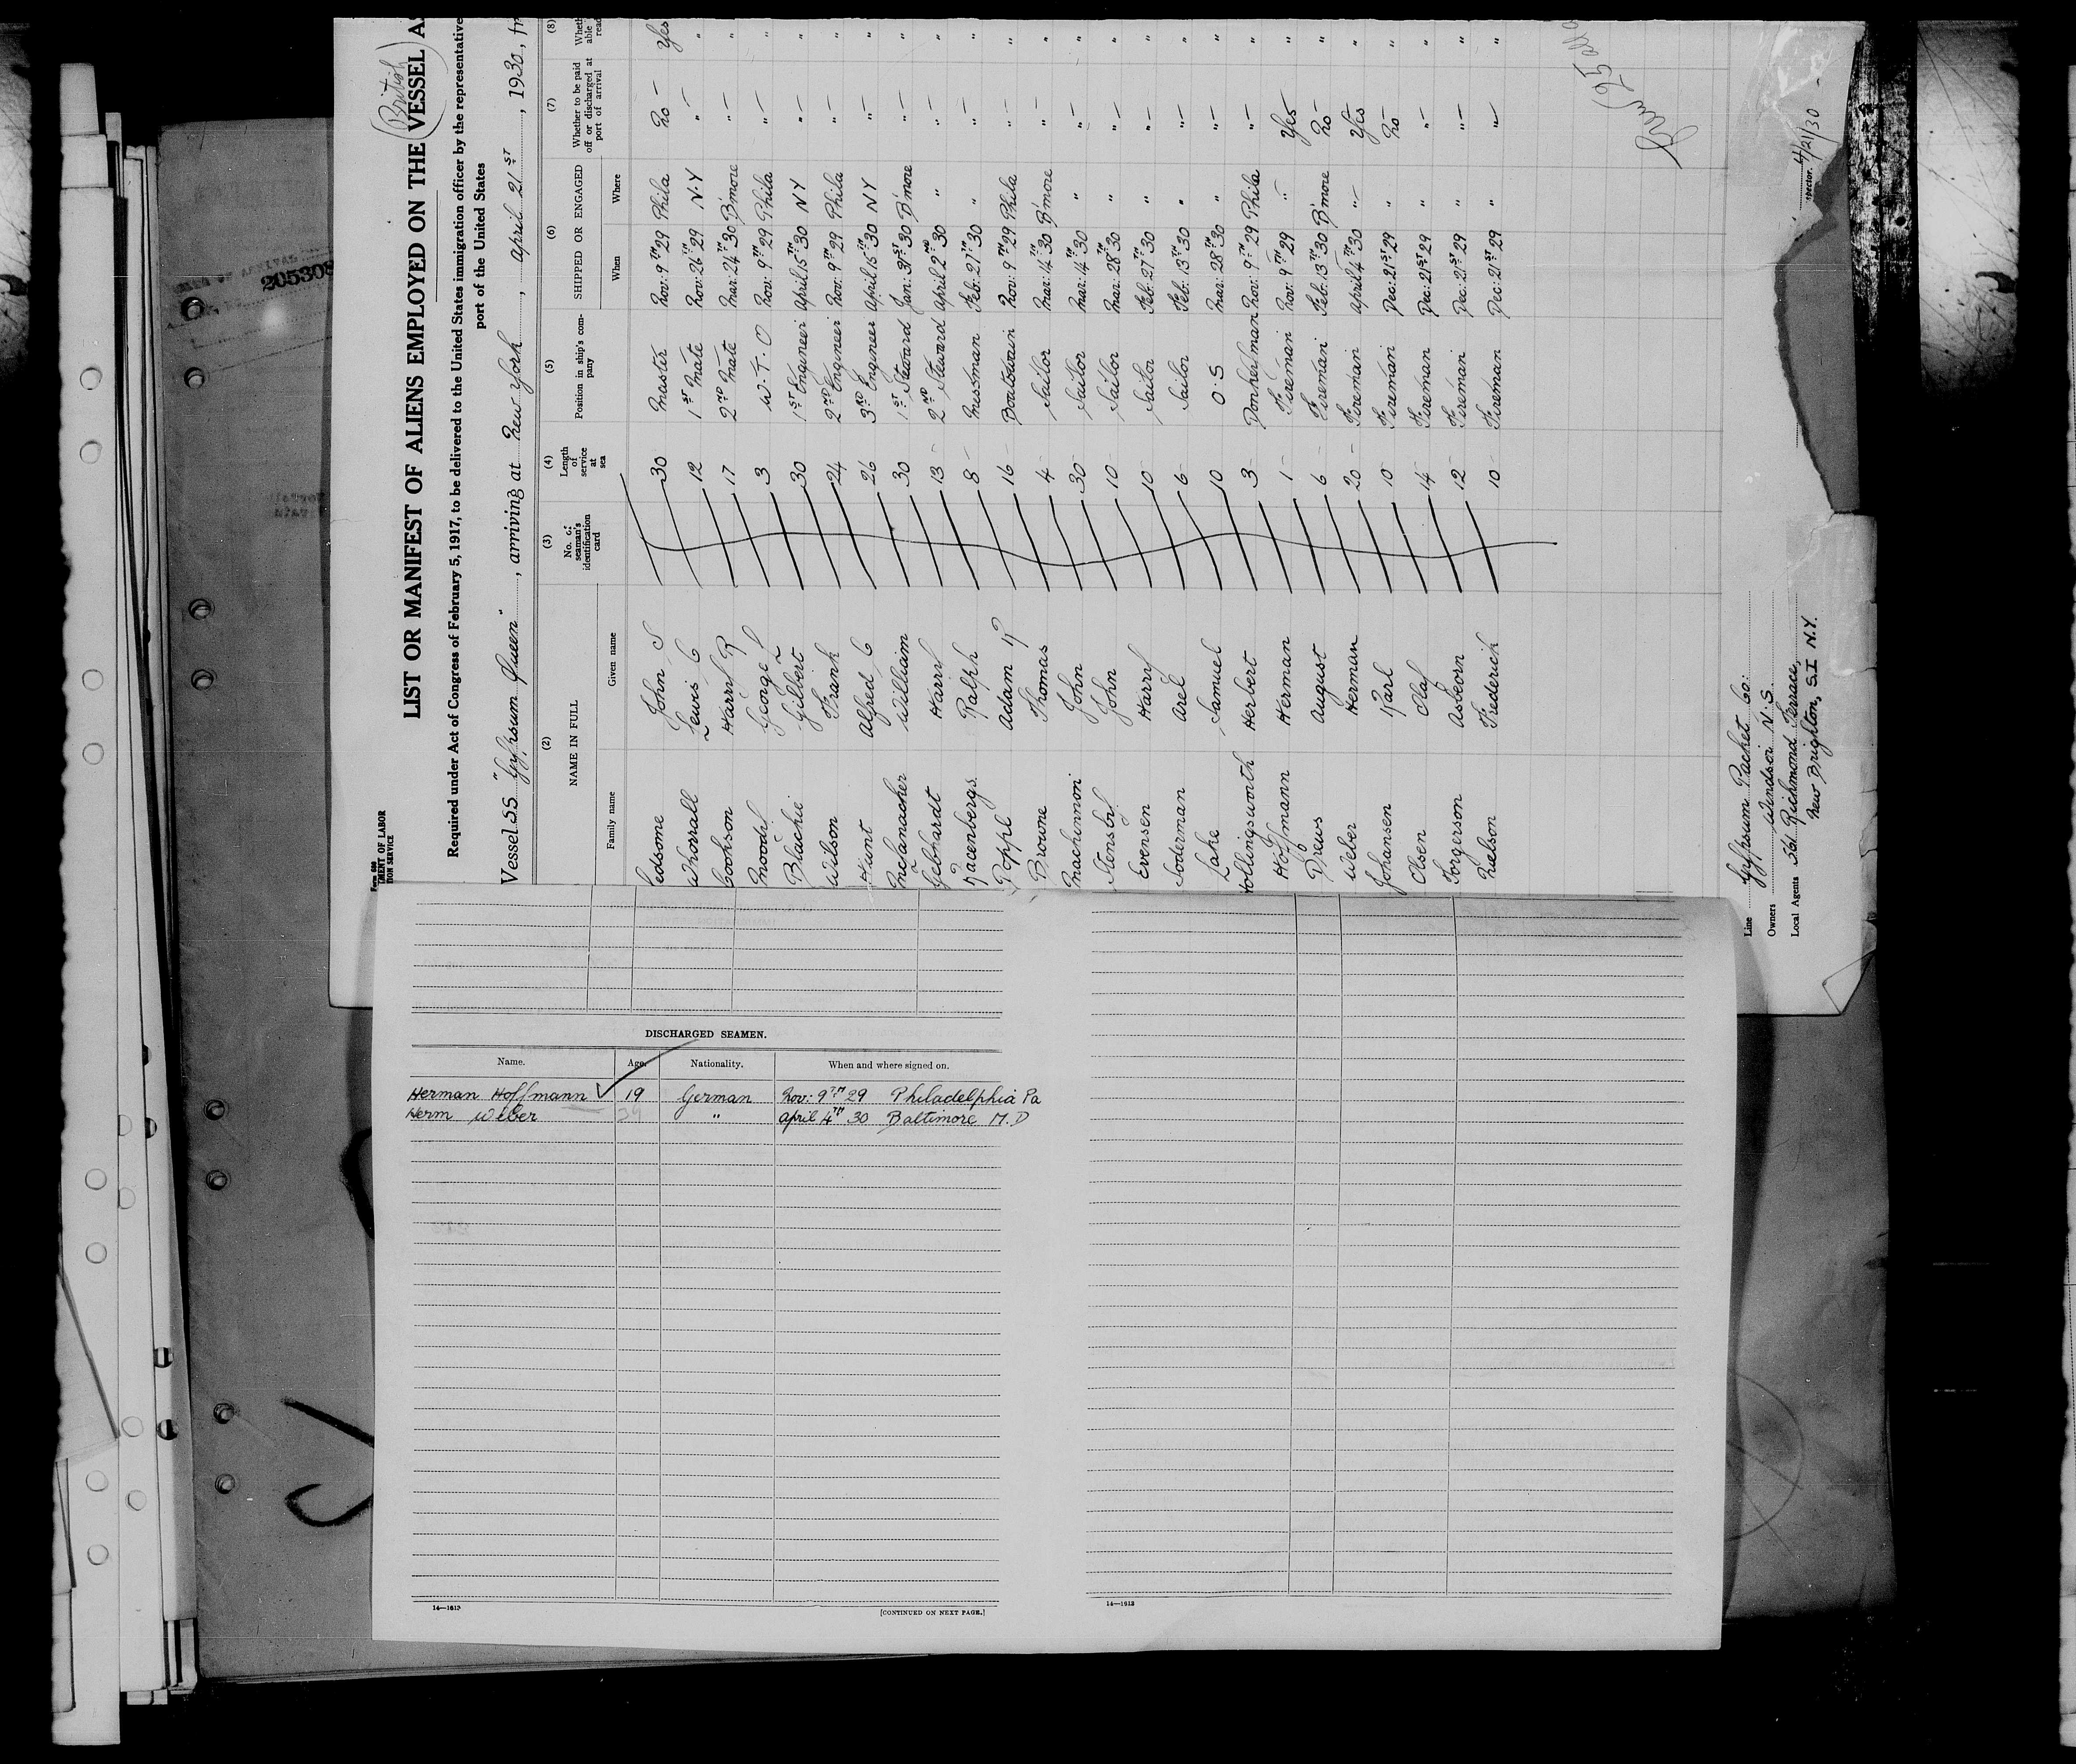 Form 680
LIST OR MANIFEST OF ALIENS EMPLOYED ON THE VESSEL AS
(British)
Required under Act of Congress of February 5, 1917, to be delivered to the United States immigration officer by the representative
port of the United States
Vessel SS "Gypsum Queen", arriving at New York, April 21ST, 1930, fr
(2) NAME IN FULL (3) No. of seaman's identification card (4) Length of service at sea (5) Position in ship's company (6) SHIPPED OR ENGAGED (7) Whether to be paid off or discharged at port of arrival (8)
Family name Given name When Where
Ledsome John S 30 Master Nov: 9TH 29 Phila No Yes
Whorrall Lewis C 12 1ST Mate Nov: 26TH 29 N.Y " "
Cookson Harry R 17 2ND Mate Mar: 24TH 30 B'more " "
Moody George L 3 W.T.O Nov: 9TH 29 Phila " "
Blachie Gilbert 30 1ST Engineer April 15TH 30 NY " "
Wilson Frank 24 2ND Engineer Nov: 9TH 29 Phila " "
Hunt Alfred C 26 3RD Engineer April 15TH 30 NY " "
McLanacher William 30 1ST Steward Jan: 31ST 30 B'more " "
Gebhardt Harry 13 2ND Steward April 2ND 30 " " "
Ralph 8 Messman Feb: 27TH 30 " " "
Poppl Adam 16 Boatswain Nov: 9TH 29 Phila " "
Browne Thomas 4 Sailor Mar: 14TH 30 B'more " "
Mackinnon John 30 Sailor Mar: 14TH 30 " " "
Stensby John 10 Sailor Mar: 28TH 30 " " "
Evensen Harry 10 Sailor Feb: 27TH 30 " " "
Soderman Axel 6 Sailor Feb: 13TH 30 " " "
Lake Samuel 10 O.S Mar: 28TH 30 " " "
Hollingsworth Herbert 3 Donkeyman Nov: 9TH 29 Phila " "
Hoffmann Herman 1 Fireman Nov: 9TH 29 " Yes "
Drews August 6 Fireman Feb: 13TH 30 B'more No "
Weber Herman 20 Fireman April 4TH 30 " Yes "
Johansen Karl 10 Fireman Dec: 21ST 29 " No "
Olsen Olaf 14 Fireman Dec: 21ST 29 " " "
Torgerson Asbeorn 12 Fireman Dec: 21ST 29 " " "
Nielson Frederick 10 Fireman Dec: 21ST 29 " " "
Line Gypsum Packet Co:
Owners Windsor N.S.
Local Agents 561 Richmond Terrace,
New Brighton, S.I N.Y.
4/21/30
DISCHARGED SEAMEN.
Name. Age. Nationality. When and where signed on.
Herman Hoffmann 19 German Nov: 9TH 29 Philadelphia Pa
Herm Weber " April 4TH 30 Baltimore M.D
14—1613
[CONTINUED ON NEXT PAGE.]
14—1613